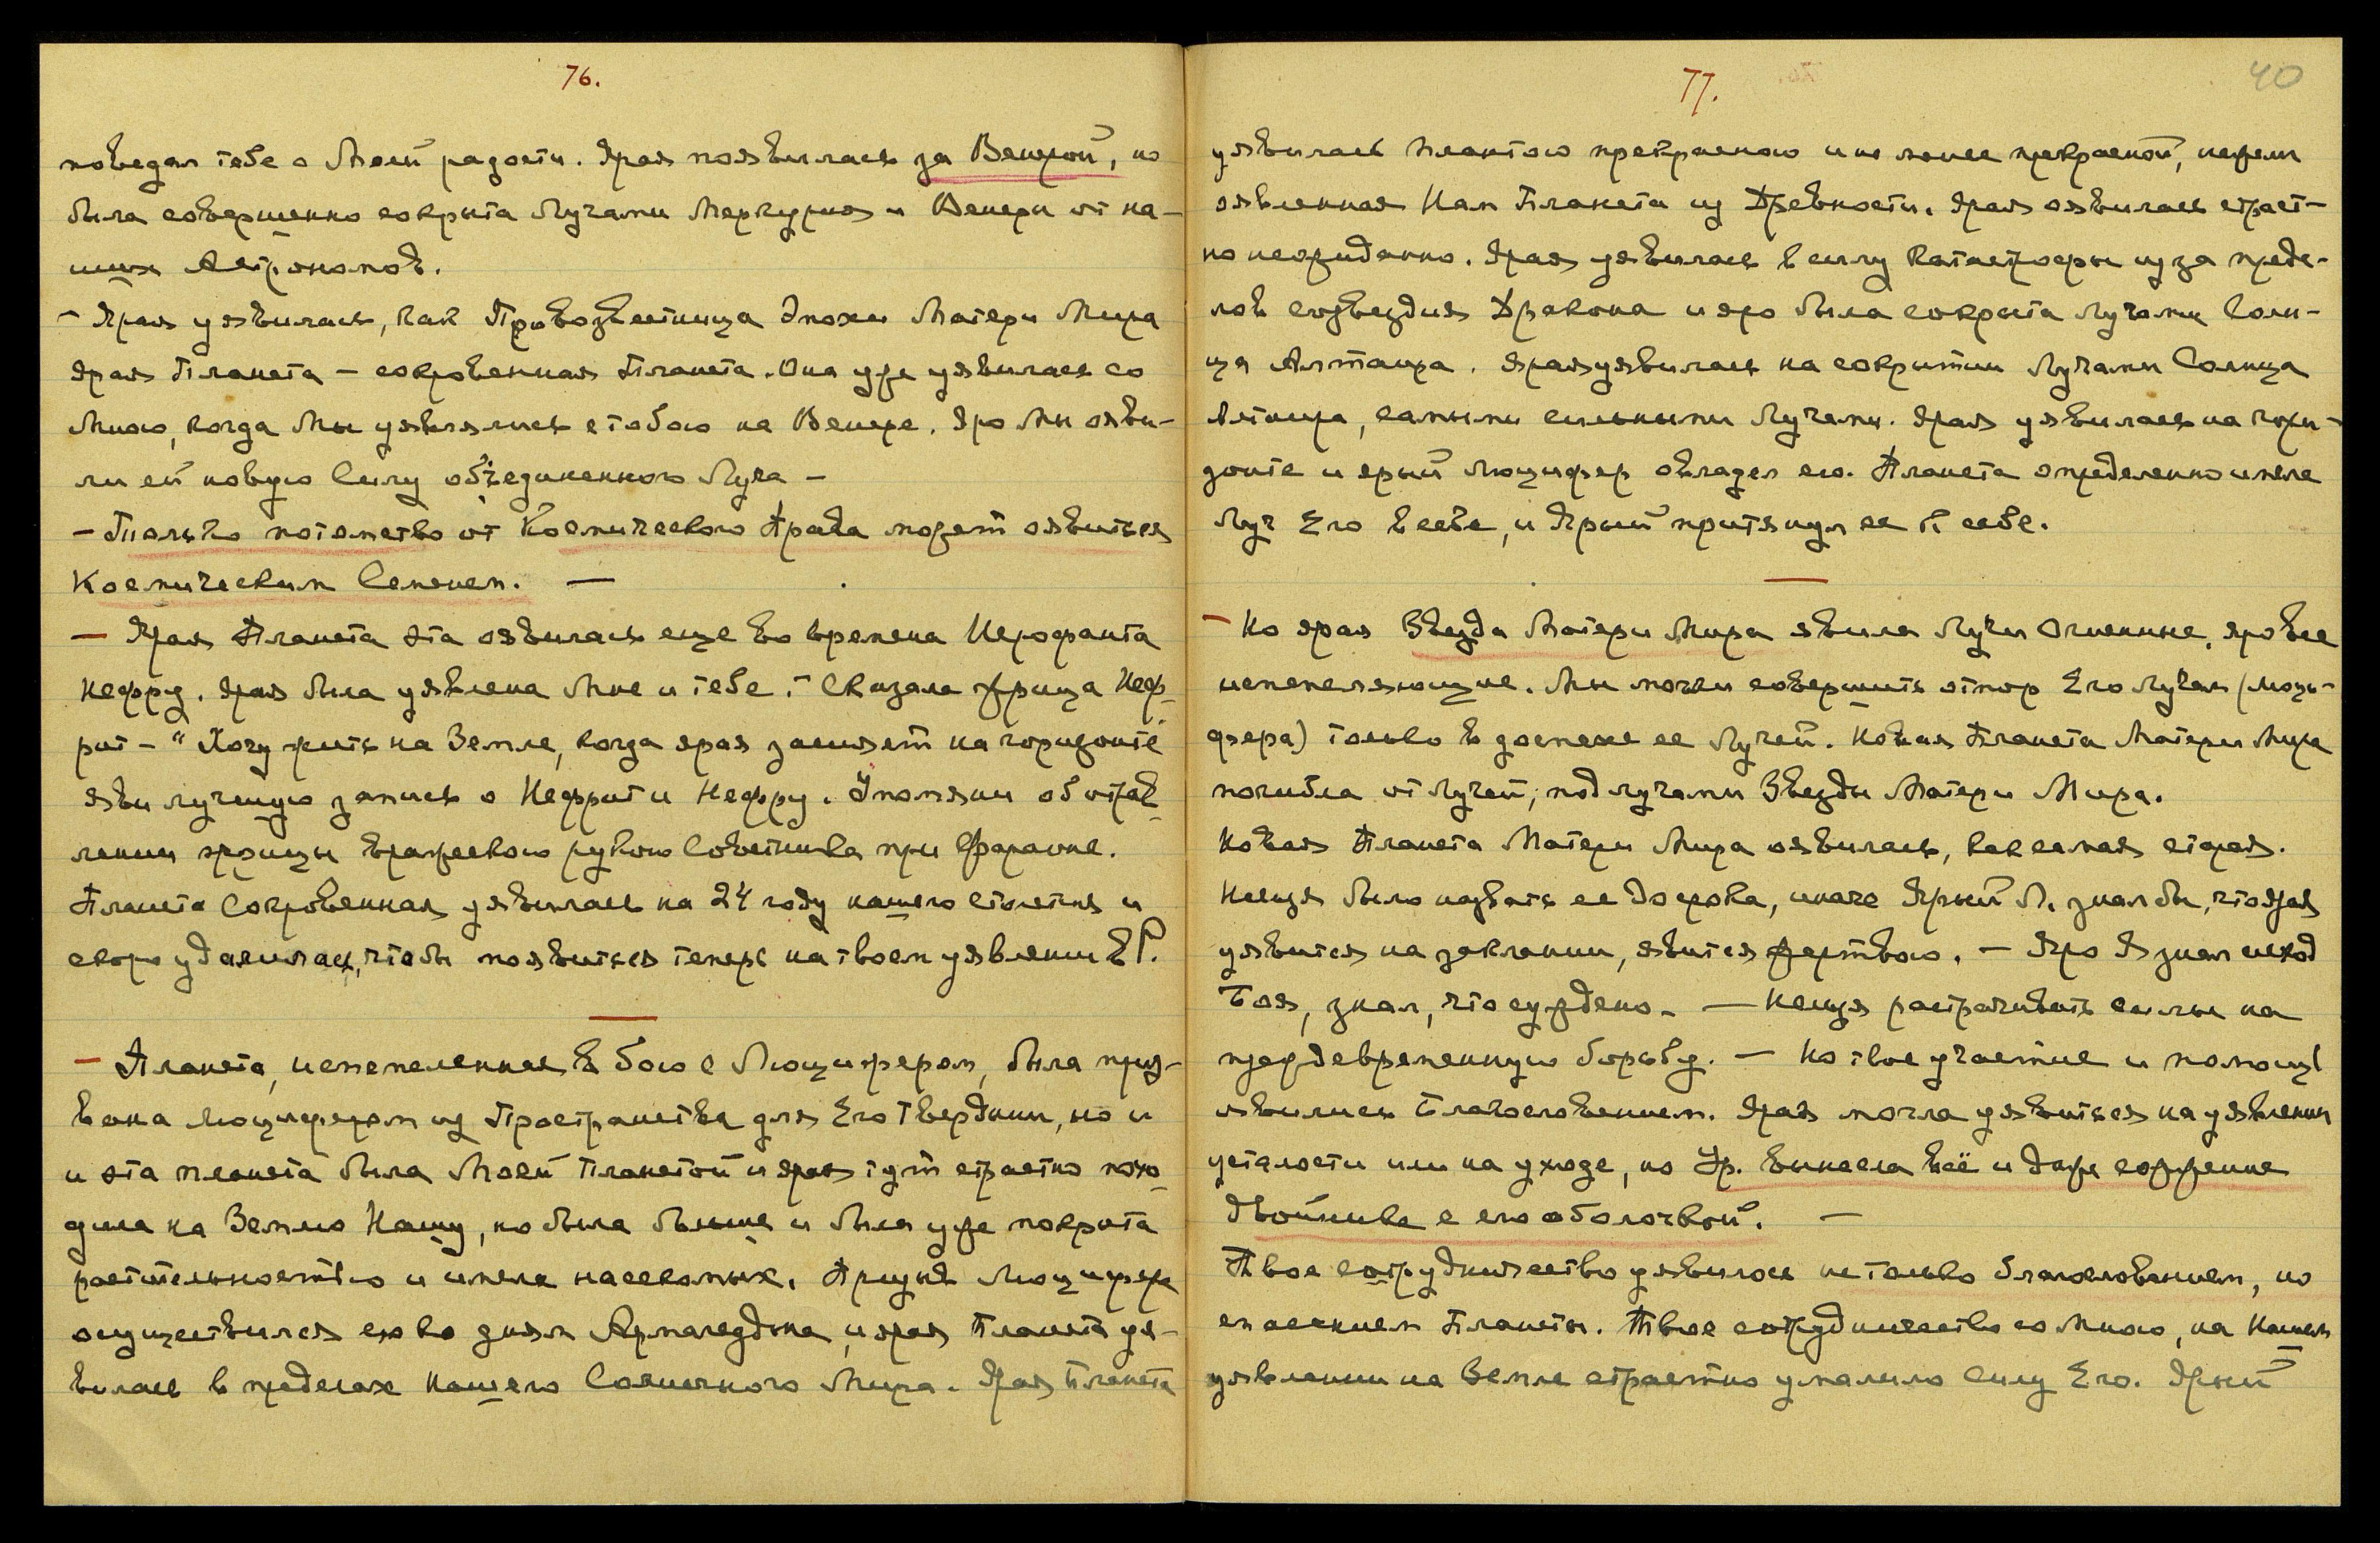 76.
поведал тебе о Моей радости. Ярая появилась за Венерой, но
была совершенно сокрыта Лучами Меркурия и Венеры от на-
ших Астрономов.
– Ярая уявилась, как Провозвестница Эпохи Матери Мира
Ярая Планета – сокровенная Планета. Она уже уявилась со
Мною, когда Мы уявлялись с тобою на Венере. Яро Мыояви-
ли ей новую Силу объединенного Луча –
– Только потомство от Космического Брака может оявиться
Космическим Семенем. —
— Ярая Планета эта оявилась еще во времена Иерофанта
Неффру. Ярая была уявлена Мне и тебе. – Сказала Жрица Неф-
рит – "Хочу жить на Земле, когда ярая засияет на горизонте
Яви лучшую запись о Нефрит и Неффру. Упомяни об отрав-
лении жрицы вражескою рукою Советника при Фараоне.
Планета Сокровенная уявилась на 24 году нашего столетия и
скоро удалилась, чтобы появиться теперь на твоем уявлении в Г.
– Планета, испепеленная в бою с Люцифером, была приз-
вана Люцифером из Пространства для Его Твердыни, но и
и эта планета была Моей Планетой и ярая тут страстно похо-
дила на Землю Нашу, но была больше и была уже покрыта
растительностью и имела насекомых. Призыв Люцифера
осуществился ко дням Армагеддона, и ярая Планета уя-
вилась в пределах Нашего Солнечного Мира. Ярая Планета
77.
40
уявилась Планетою прекрасною и не менее прекрасной, нежели
оявленная Нам Планета из Древности. Ярая оявилась страст-
но неожиданно. Ярая уявилась в силу Катастрофы из за преде-
лов созвездия Дракона и яро была сокрыта Лучами Солн-
ца Альтаира. Ярая уявилась на сокрытии Лучами Солнца
Альтаира, самыми сильными Лучами. Ярая уявилась на гори-
зонте и ярый Люцифер овладел ею. Планета определенно имела
Луч Его в себе, и Ярый притянул ее к себе.
– Но ярая Звезда Матери Мира явила Лучи Огненные, яро все
испепеляющие. Мы могли совершить отпор Его Лучам (Люци-
фера) только в доспехе ее Лучей. Новая Планета Матери Мира
погибла от Лучей, под лучами Звезды Матери Мира.
Новая Планета Матери Мира оявилась, как самая старая.
Нельзя было назвать ее до срока, иначе Ярый Л. знал бы, что ярая
уявится на заклании, явится жертвою. – Яро Я знал исход
Боя, знал, что суждено. — Нельзя растрачивать силы на
преждевременную борьбу. – Но твое участие и помощь
явились Благословением. Ярая могла уявиться на уявлении
усталости или на уходе, но Ур. вынесла всё и даже сожжение
двойника с его оболочкой. —
Твое сотрудничество уявилось не только благословением, но
спасением Планеты. Твое сотрудничество со Мною, на Нашем
уявлении на Земле страстно умалило Силу Его. Ярый